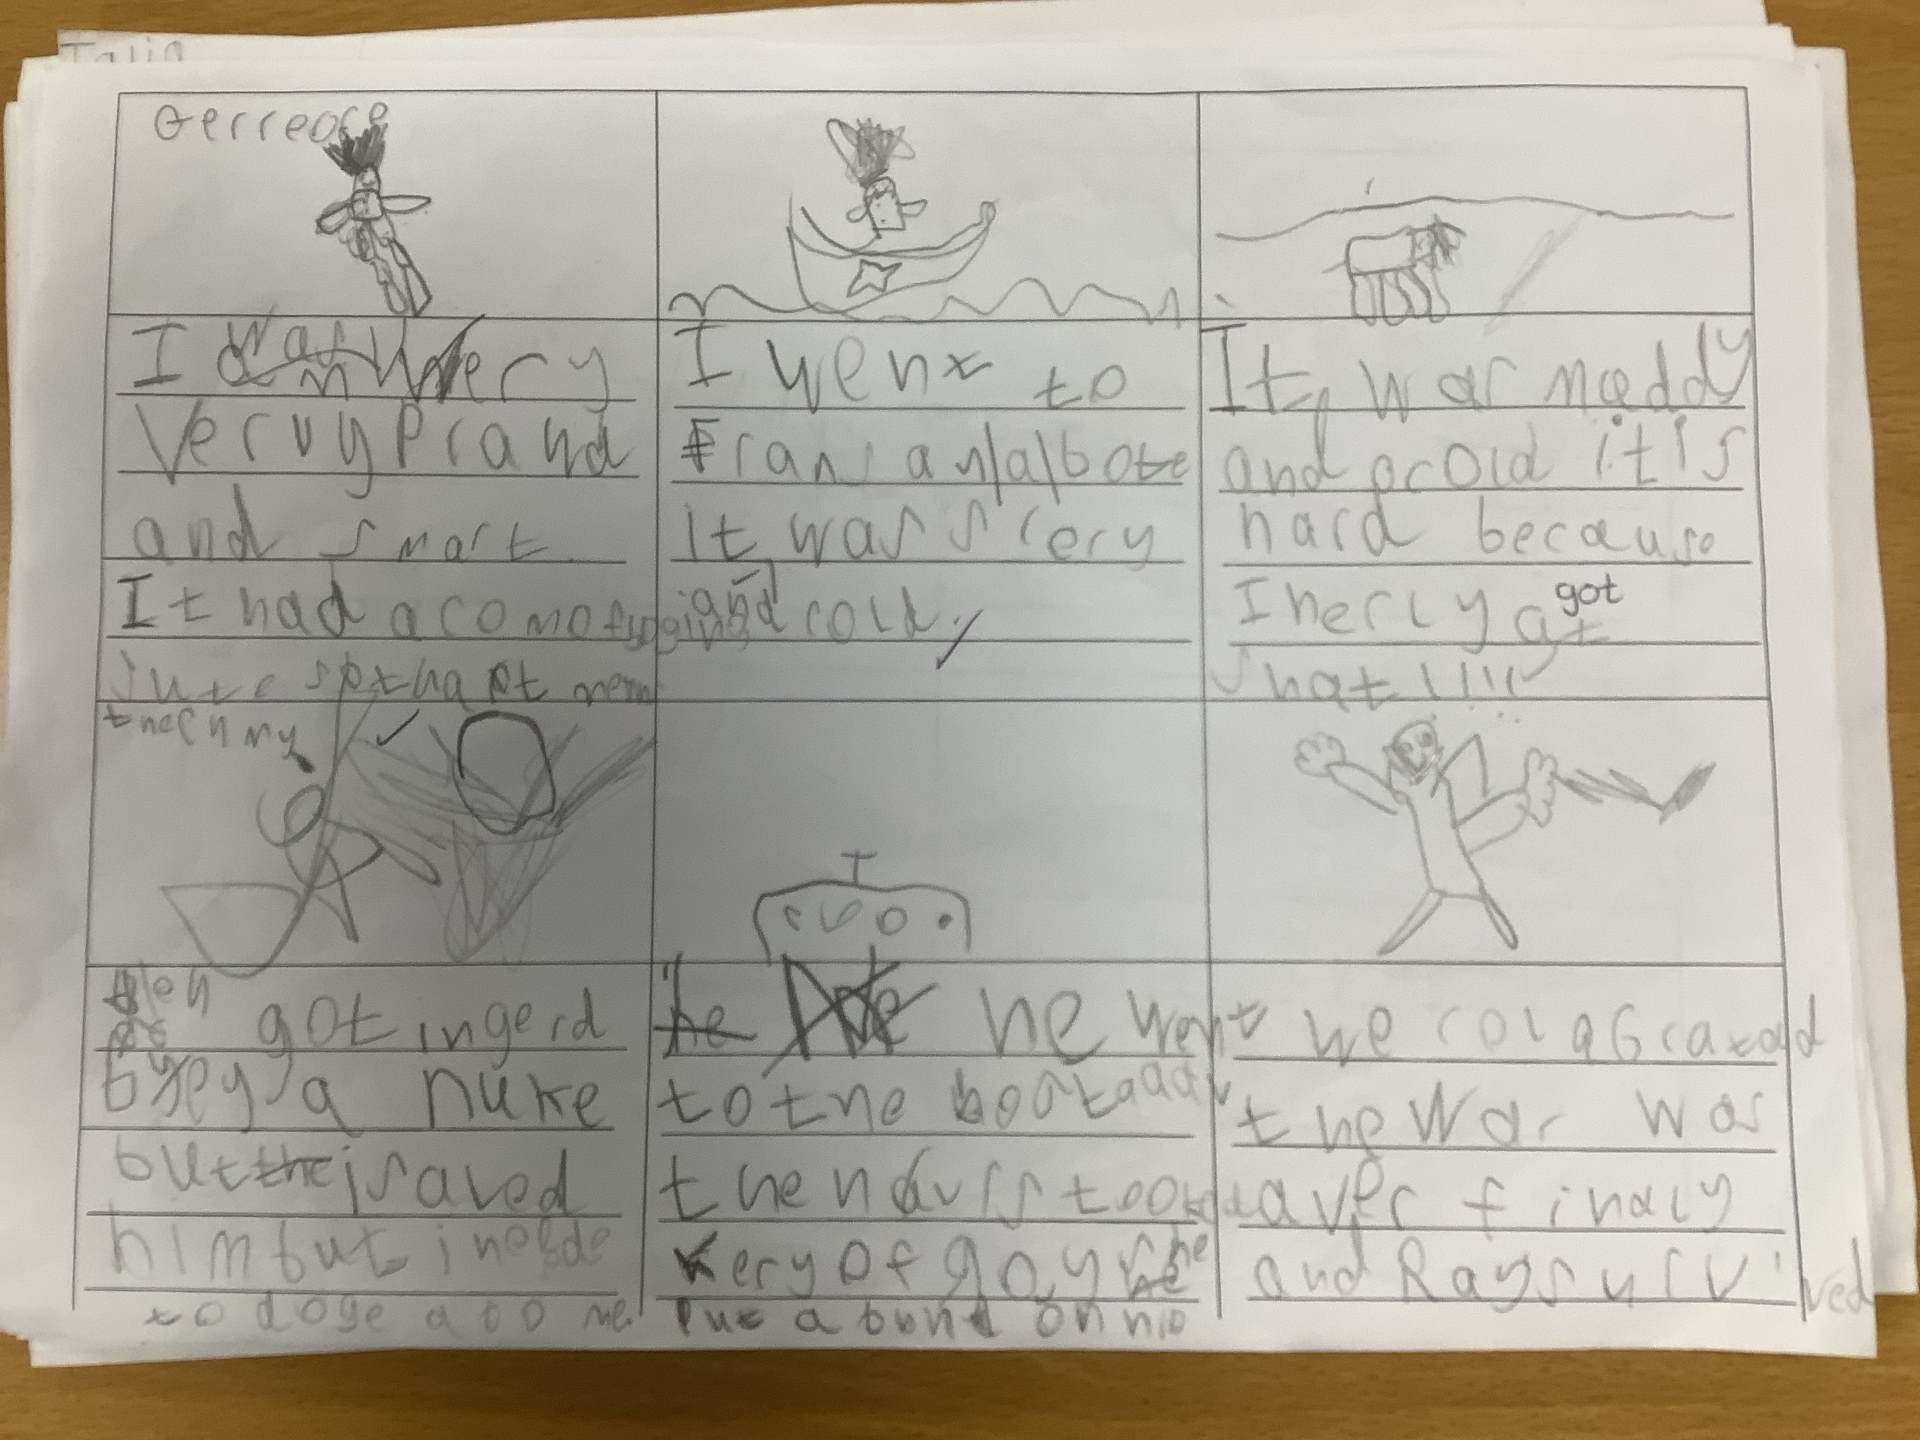 I was very
Vervy Praud
and smart
It had a comofurging
sute so that ment
the n my
I went to
Frans an a bote
It was scery
and cold.
It war meddy
and cold it is
hard because
I nerly got
shat!!!!
got ingerd
by a nuke
but i saved
him but i nede
to doge a bo me.
he he went
to the boat aaa
the nurss took
kery of gay she
put a bund on hio
we colabratad
the War was
aver finaly
and Ray survi
ved